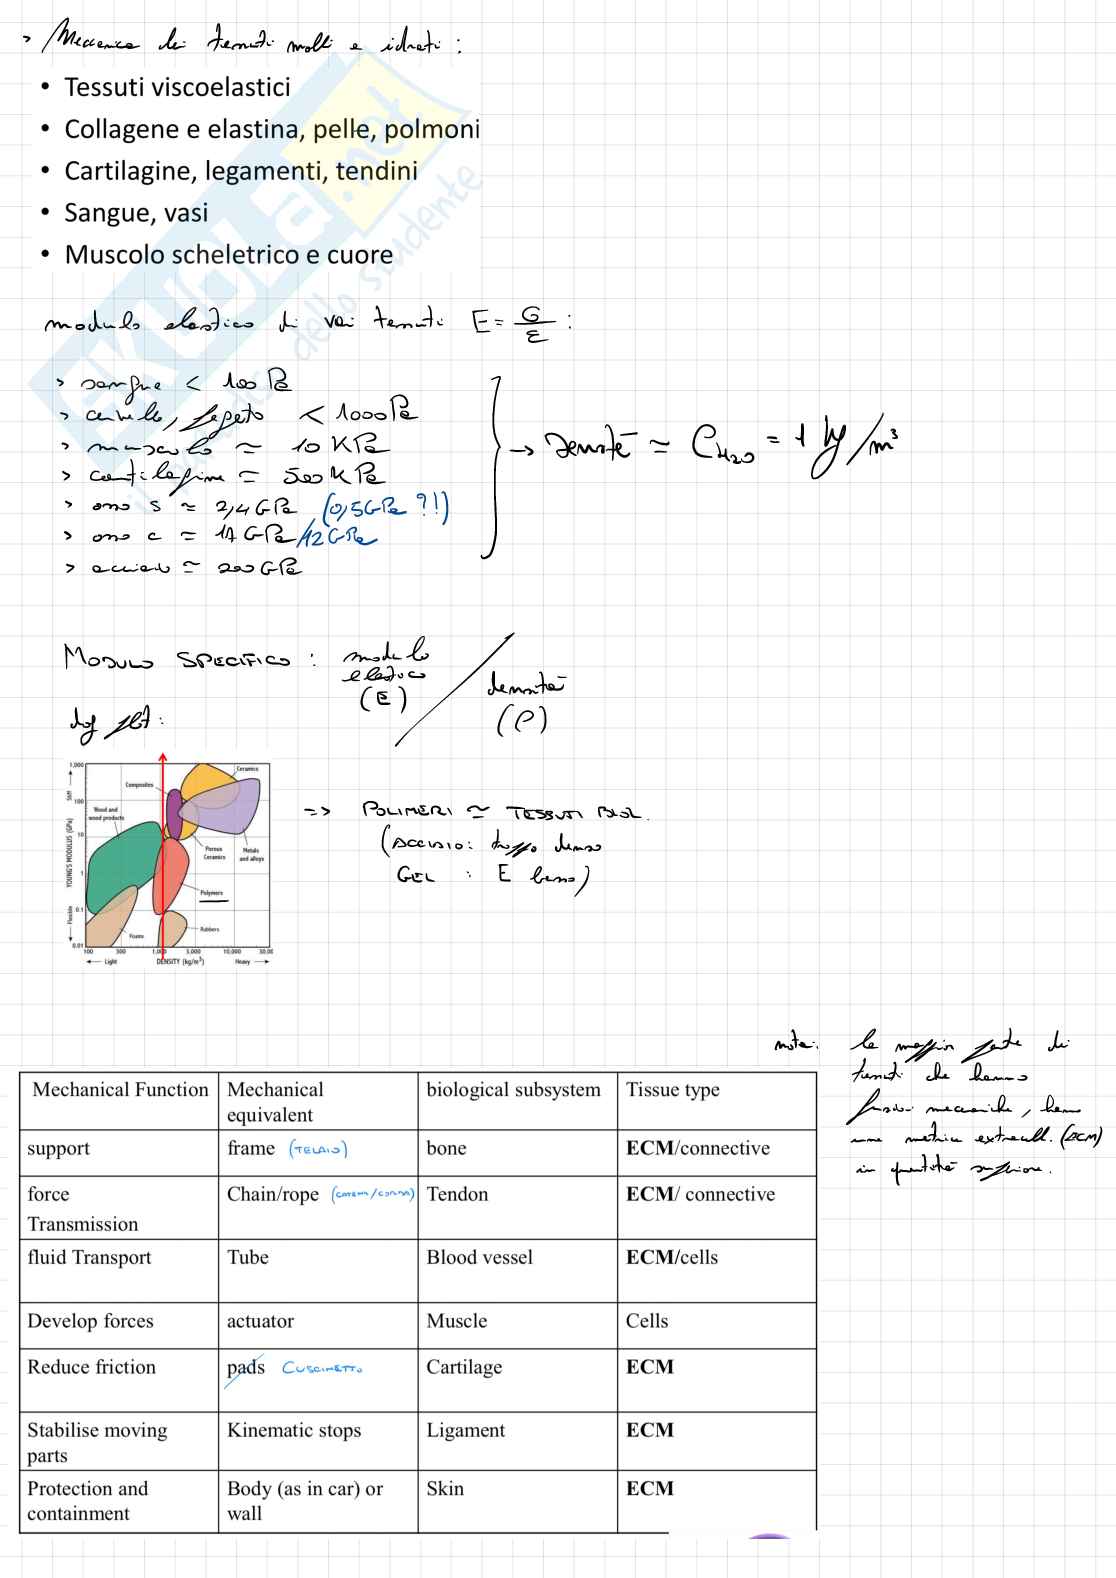 > Meccanica dei tessuti molli e idrati:
• Tessuti viscoelastici
• Collagene e elastina, pelle, polmoni
• Cartilagine, legamenti, tendini
• Sangue, vasi
• Muscolo scheletrico e cuore
SKUOLA.net
dello studente
modulo elastico di vari tessuti E = σ/ε :
> sangue < 100 Pa
> cervello, fegato < 1000 Pa
> muscolo ≃ 10 KPa
> cartilagine ≃ 500 KPa
> osso s ≃ 2,4 GPa (0,5 GPa ?!)
> osso c ≃ 17 GPa/12 GPa
> acciaio ≃ 200 GPa
→ densità ≃ ρH2O = 1 kg/m³
MODULO SPECIFICO: modulo elastico (E) / densità (ρ)
1,000
100
10
1
0.1
0.01
Stiff
YOUNG'S MODULUS (GPa)
Flexible
Ceramics
Composites
Wood and
wood products
Porous
Ceramics
Metals
and alloys
Polymers
Rubbers
Foams
100 300 1,000 5,000 10,000 30,00
Light DENSITY (kg/m³) Heavy
=> POLIMERI ≃ TESSUTI BIOL.
(ACCIAIO: troppo denso
GEL : E basso)
nota: la maggior parte di
tessuti che hanno
funzioni meccaniche, hanno
una matrice extracell. (ECM)
in quantità superiore.
Mechanical Function Mechanical equivalent biological subsystem Tissue type
support frame (TELAIO) bone ECM/connective
force Transmission Chain/rope (CATENA/CORDA) Tendon ECM/ connective
fluid Transport Tube Blood vessel ECM/cells
Develop forces actuator Muscle Cells
Reduce friction pads CUSCINETTO Cartilage ECM
Stabilise moving parts Kinematic stops Ligament ECM
Protection and containment Body (as in car) or wall Skin ECM